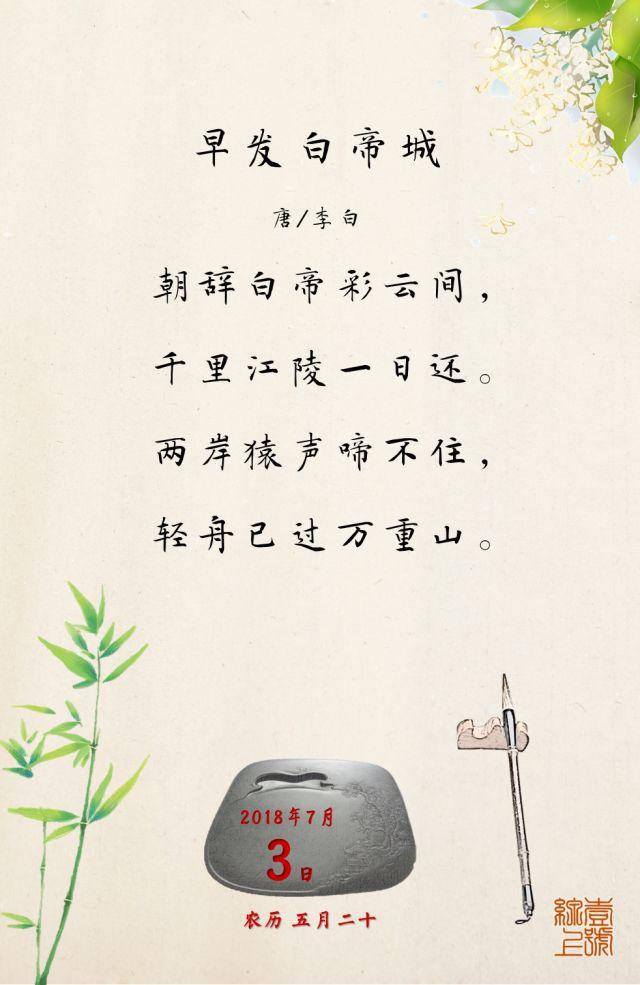 早发白帝城
唐/李白
朝辞白帝彩云间，
千里江陵一日还。
两岸猿声啼不住，
轻舟已过万重山。
2018年7月
3日
农历 五月二十